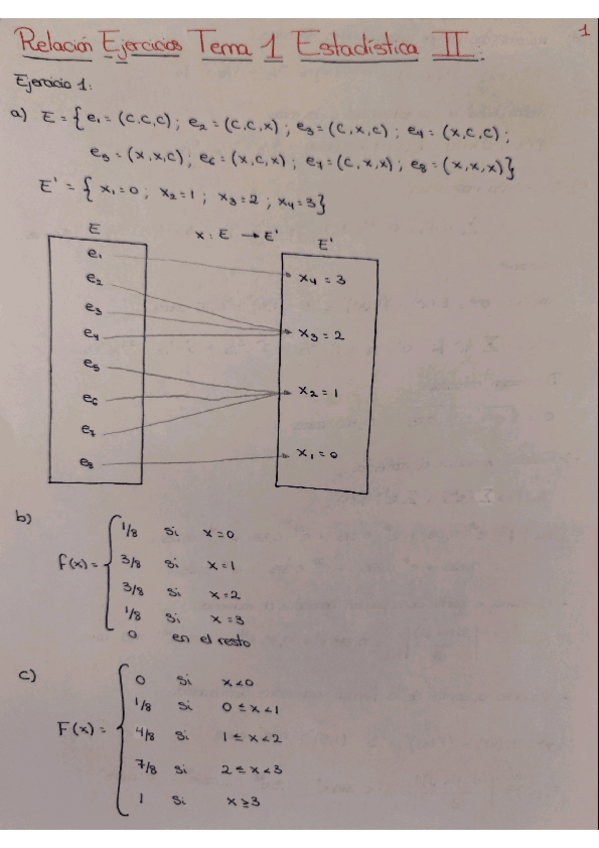 1
Relación Ejercicios Tema 1 Estadística II.
Ejercicio 1:
a) E = { e₁ = (c,c,c) ; e₂ = (c,c,x) ; e₃ = (c,x,c) ; e₄ = (x,c,c) ;
e₅ = (x,x,c) ; e₆ = (x,c,x) ; e₇ = (c,x,x) ; e₈ = (x,x,x) }
E' = { x₁=0 ; x₂=1 ; x₃=2 ; x₄=3 }
E x : E → E' E'
e₁
e₂ x₄ = 3
e₃
e₄ x₃ = 2
e₅
e₆ x₂ = 1
e₇
e₈ x₁ = 0
b)
1/8 si x=0
f(x) = { 3/8 si x=1
3/8 si x=2
1/8 si x=3
0 en el resto
c)
0 si x<0
1/8 si 0≤x<1
F(x) = { 4/8 si 1≤x<2
7/8 si 2≤x<3
1 si x≥3